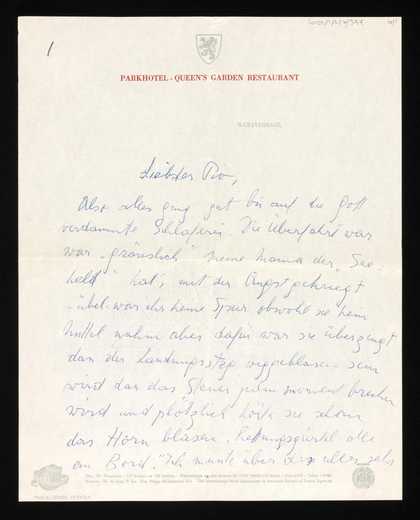 1
PARKHOTEL - QUEEN'S GARDEN RESTAURANT
's-GRAVENHAGE,
Liebster Pio,
Also alles ging gut bis auf die Gott
verdammte Schlaferei. Die Überfahrt war
war "grässlich" meine Mama der "See
held" hat, mit der Angst gekriegt
übel war ihr keine Spur obwohl sie kein
Mittel nahm aber dafür war sie überzeugt
dan der Landungssteg weggeblasen sein
wird dan das Steuer jeden moment brechen
wird und plötzlich hört sie schon
das Horn blasen, Rettungsgürtel alle
an Bord." Ich musste über alles sehr